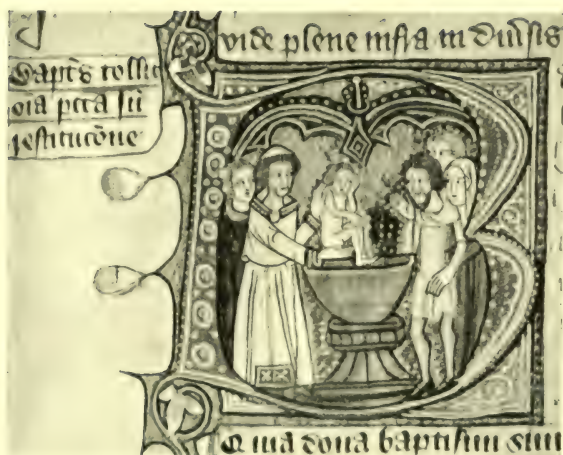 vide plene infra in diu̾sis
Bapt̄s tollit
oīa pctā sīn
restitucōne
Quia dona baptismi sunt